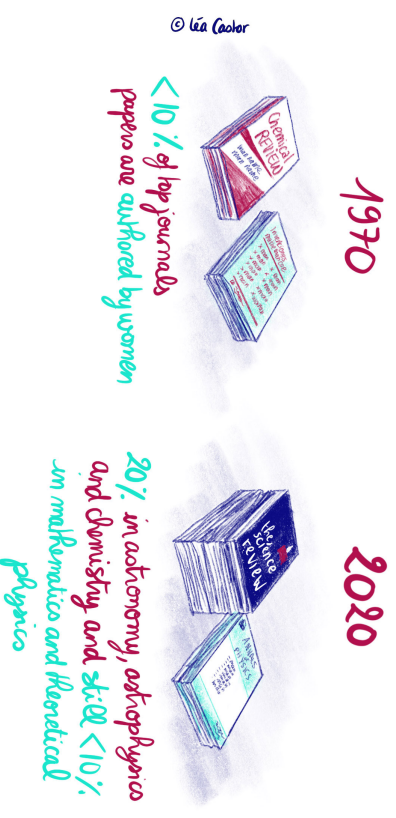 1970
Chemical
REVIEW
<10% of top journals
papers are authored by women
© Léa Castor
2020
the
science
REVIEW
ANNALS
PHYSICS
20% in astronomy, astrophysics
and chemistry and still <10%
in mathematics and theoretical
physics